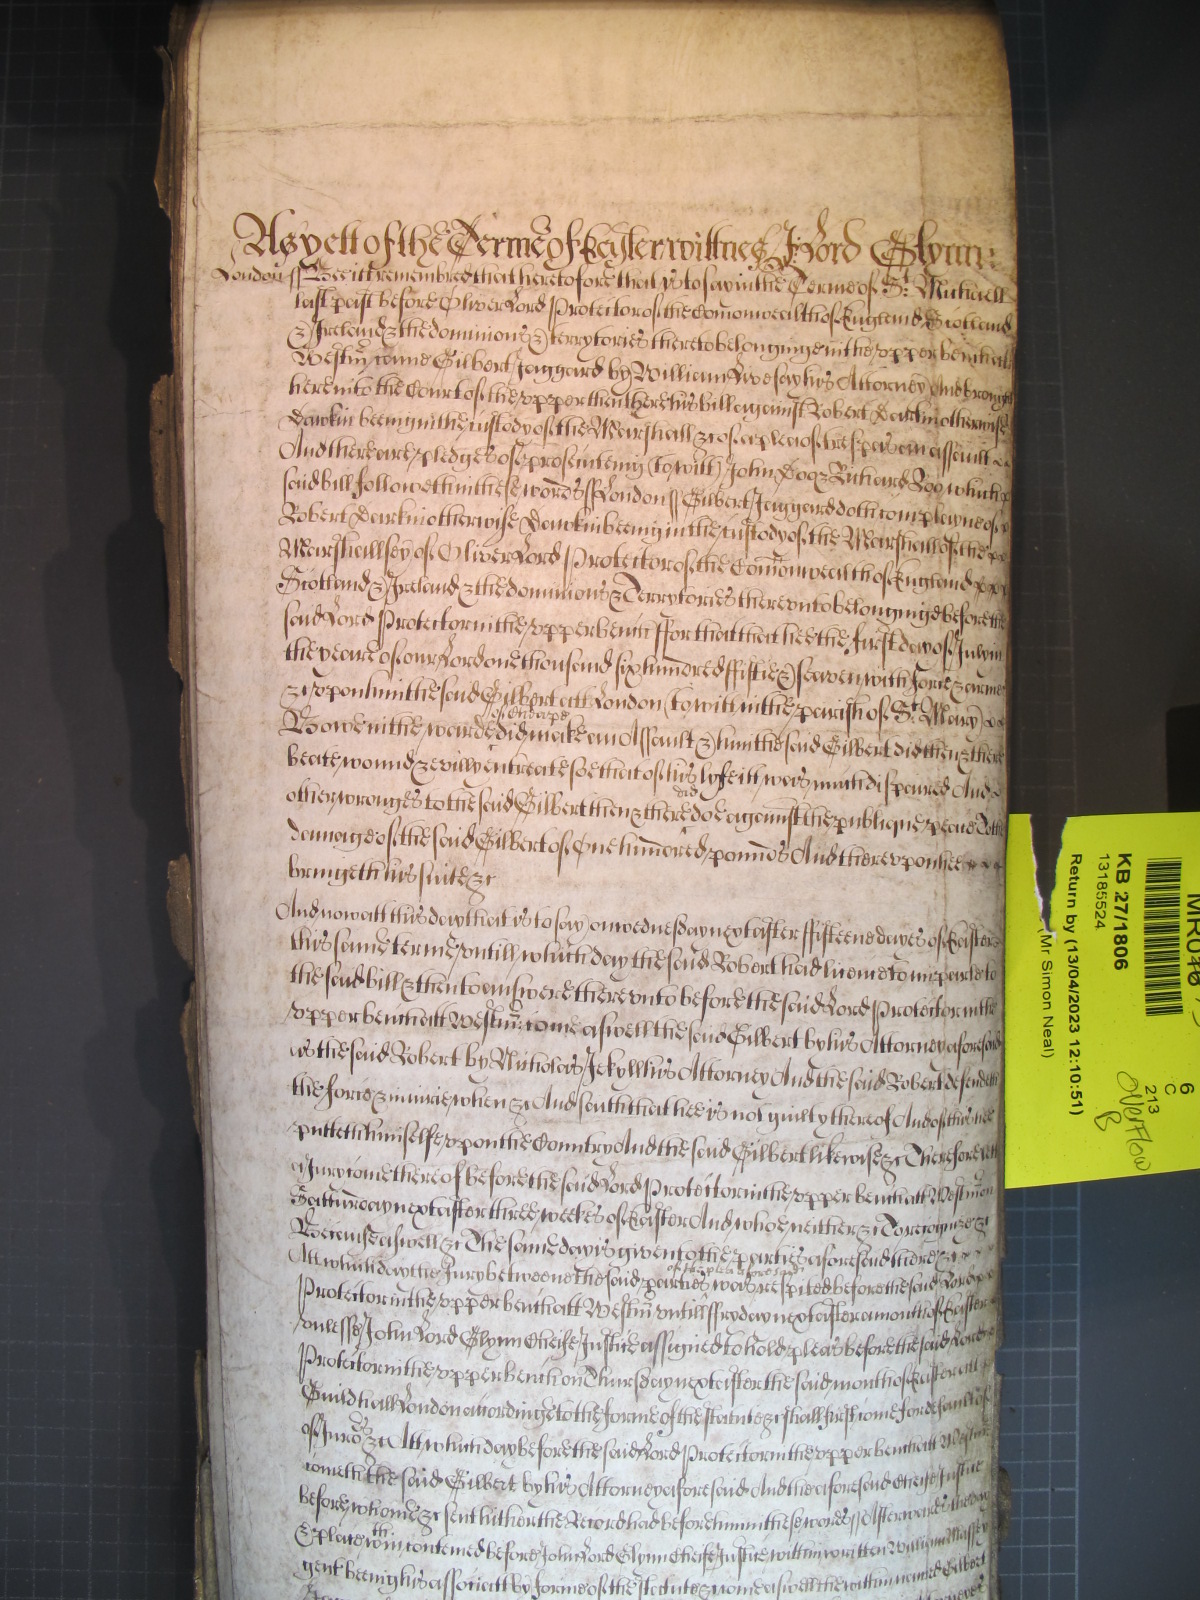 As yett of the Terme of Easter wittnes J: Lord Glynn:
London ss Bee itt remembred that heretofore that ys to say in the Terme of St: Michaell
last past before Oliver Lord Protector of the Comonwealth of England Scotland
& Ireland & the dominions & terrytories thereto belonginge in the vpper bench att
Westm came Gilbert Jaggard by William Livesay his Attorney And brought
here into the Court of the vpper then there his bill against Robert Darkin otherwise
Dawkin beeing in the custody of the Marshall &c of a plea of trespas and assault
And there are pledges of prosecuteing (to witt) John Doo & Richard Roo which
said bill followeth in these words ss London ss Gilbert Jaggard doth complayne of
Robert Darkin otherwise Dawkin beeing in the custody of the Marshall of the
Marshallsey of Oliver Lord Protector of the Comonwealth of England
Scotland & Ireland & the dominions & Terrytories therevnto belonging before the
said Lord Protector in the vpper bench ffor that that hee the first day of July in
the yeare of our Lord one thousand six hundred fiftie & seaven with force & armes
&c vpon him the said Gilbert att London (to witt in the parish of St Mary)
Bow in the warde of Cheape did make an Assault & him the said Gilbert did then & there
beate wound & evilly entreate soe that of his lyfe itt was much dispaired And
other wronges to the said Gilbert then & there did doe against the publique peace To the
damage of the said Gilbert of One hundred pounds And therevpon hee
bringeth his suite &c
And now att this day that is to say on wednesday next after ffifteene dayes of Easter
this same terme vntill which day the said Robert had licence to imparle to
the said bill & then to answere therevnto before the said Lord Protector in the
vpper bench att Westm: come aswell the said Gilbert by his Attorney aforesaid
as the said Robert by Nicholas Jekyll his Attorney And the said Robert defendeth
the force & iniurie when &c And saith that hee is not guilty thereof And of this hee
putteth himselfe vpon the Country And the said Gilbert likewise &c Therefore lett
a Jury come thereof before the said Lord Protector in the vpper bench att Westm on
Satturday next after three weekes of Easter And who neither &c To recognize &c
Because aswell &c The same day is given to the parties aforesaid there &c
Att which day the Jury betweene the said parties of the plea aforesaid was respited before the said Lord
Protector in the vpper bench att Westm vntill ffryday next after a month of Easter
vnlesse John Lord Glynn Cheife Justice assigned to hold pleas before the said Lord
Protector in the vpper bench on Thursday next after the said month of Easter att
Guildhall London according to the forme of the statute &c shall first come for default
of Jurors &c Att which day before the said Lord Protector in the vpper bench att Westm
cometh the said Gilbert by his Attorney aforesaid And the aforesaid Cheife Justice
before whome &c sent hither the Record had before him in these words ss Afterwards the day
& place within contened before John Lord Glynn Cheife Justice within written William Massey
gent beeing his associatt by forme of the statute &c come aswell the within named Gilbert
KB 27/1806
13185524
Return by (13/04/2023 12:10:51)
(Mr Simon Neal)
6
C
213
Overflow